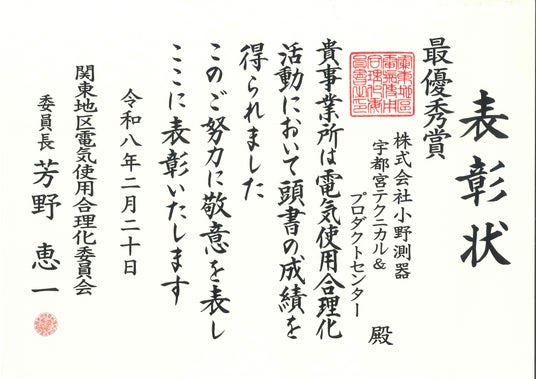 表彰状
最優秀賞
株式会社小野測器
宇都宮テクニカル&
プロダクトセンター
殿
貴事業所は電気使用合理化
活動において頭書の成績を
得られました
このご努力に敬意を表し
ここに表彰いたします
令和八年二月二十日
関東地区電気使用合理化委員会
委員長 芳野恵一